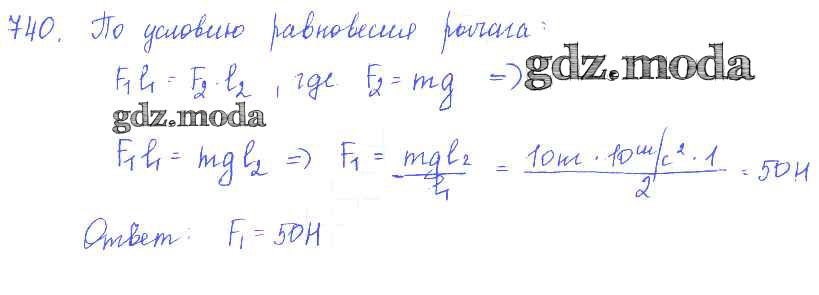 740. По условию равновесия рычага:
F₁l₁ = F₂·l₂, где F₂ = mg =>
gdz.moda
gdz.moda
F₁l₁ = mgl₂ => F₁ = mgl₂/l₁ = 10кг · 10м/с² · 1/2 = 50Н
Ответ: F₁ = 50Н